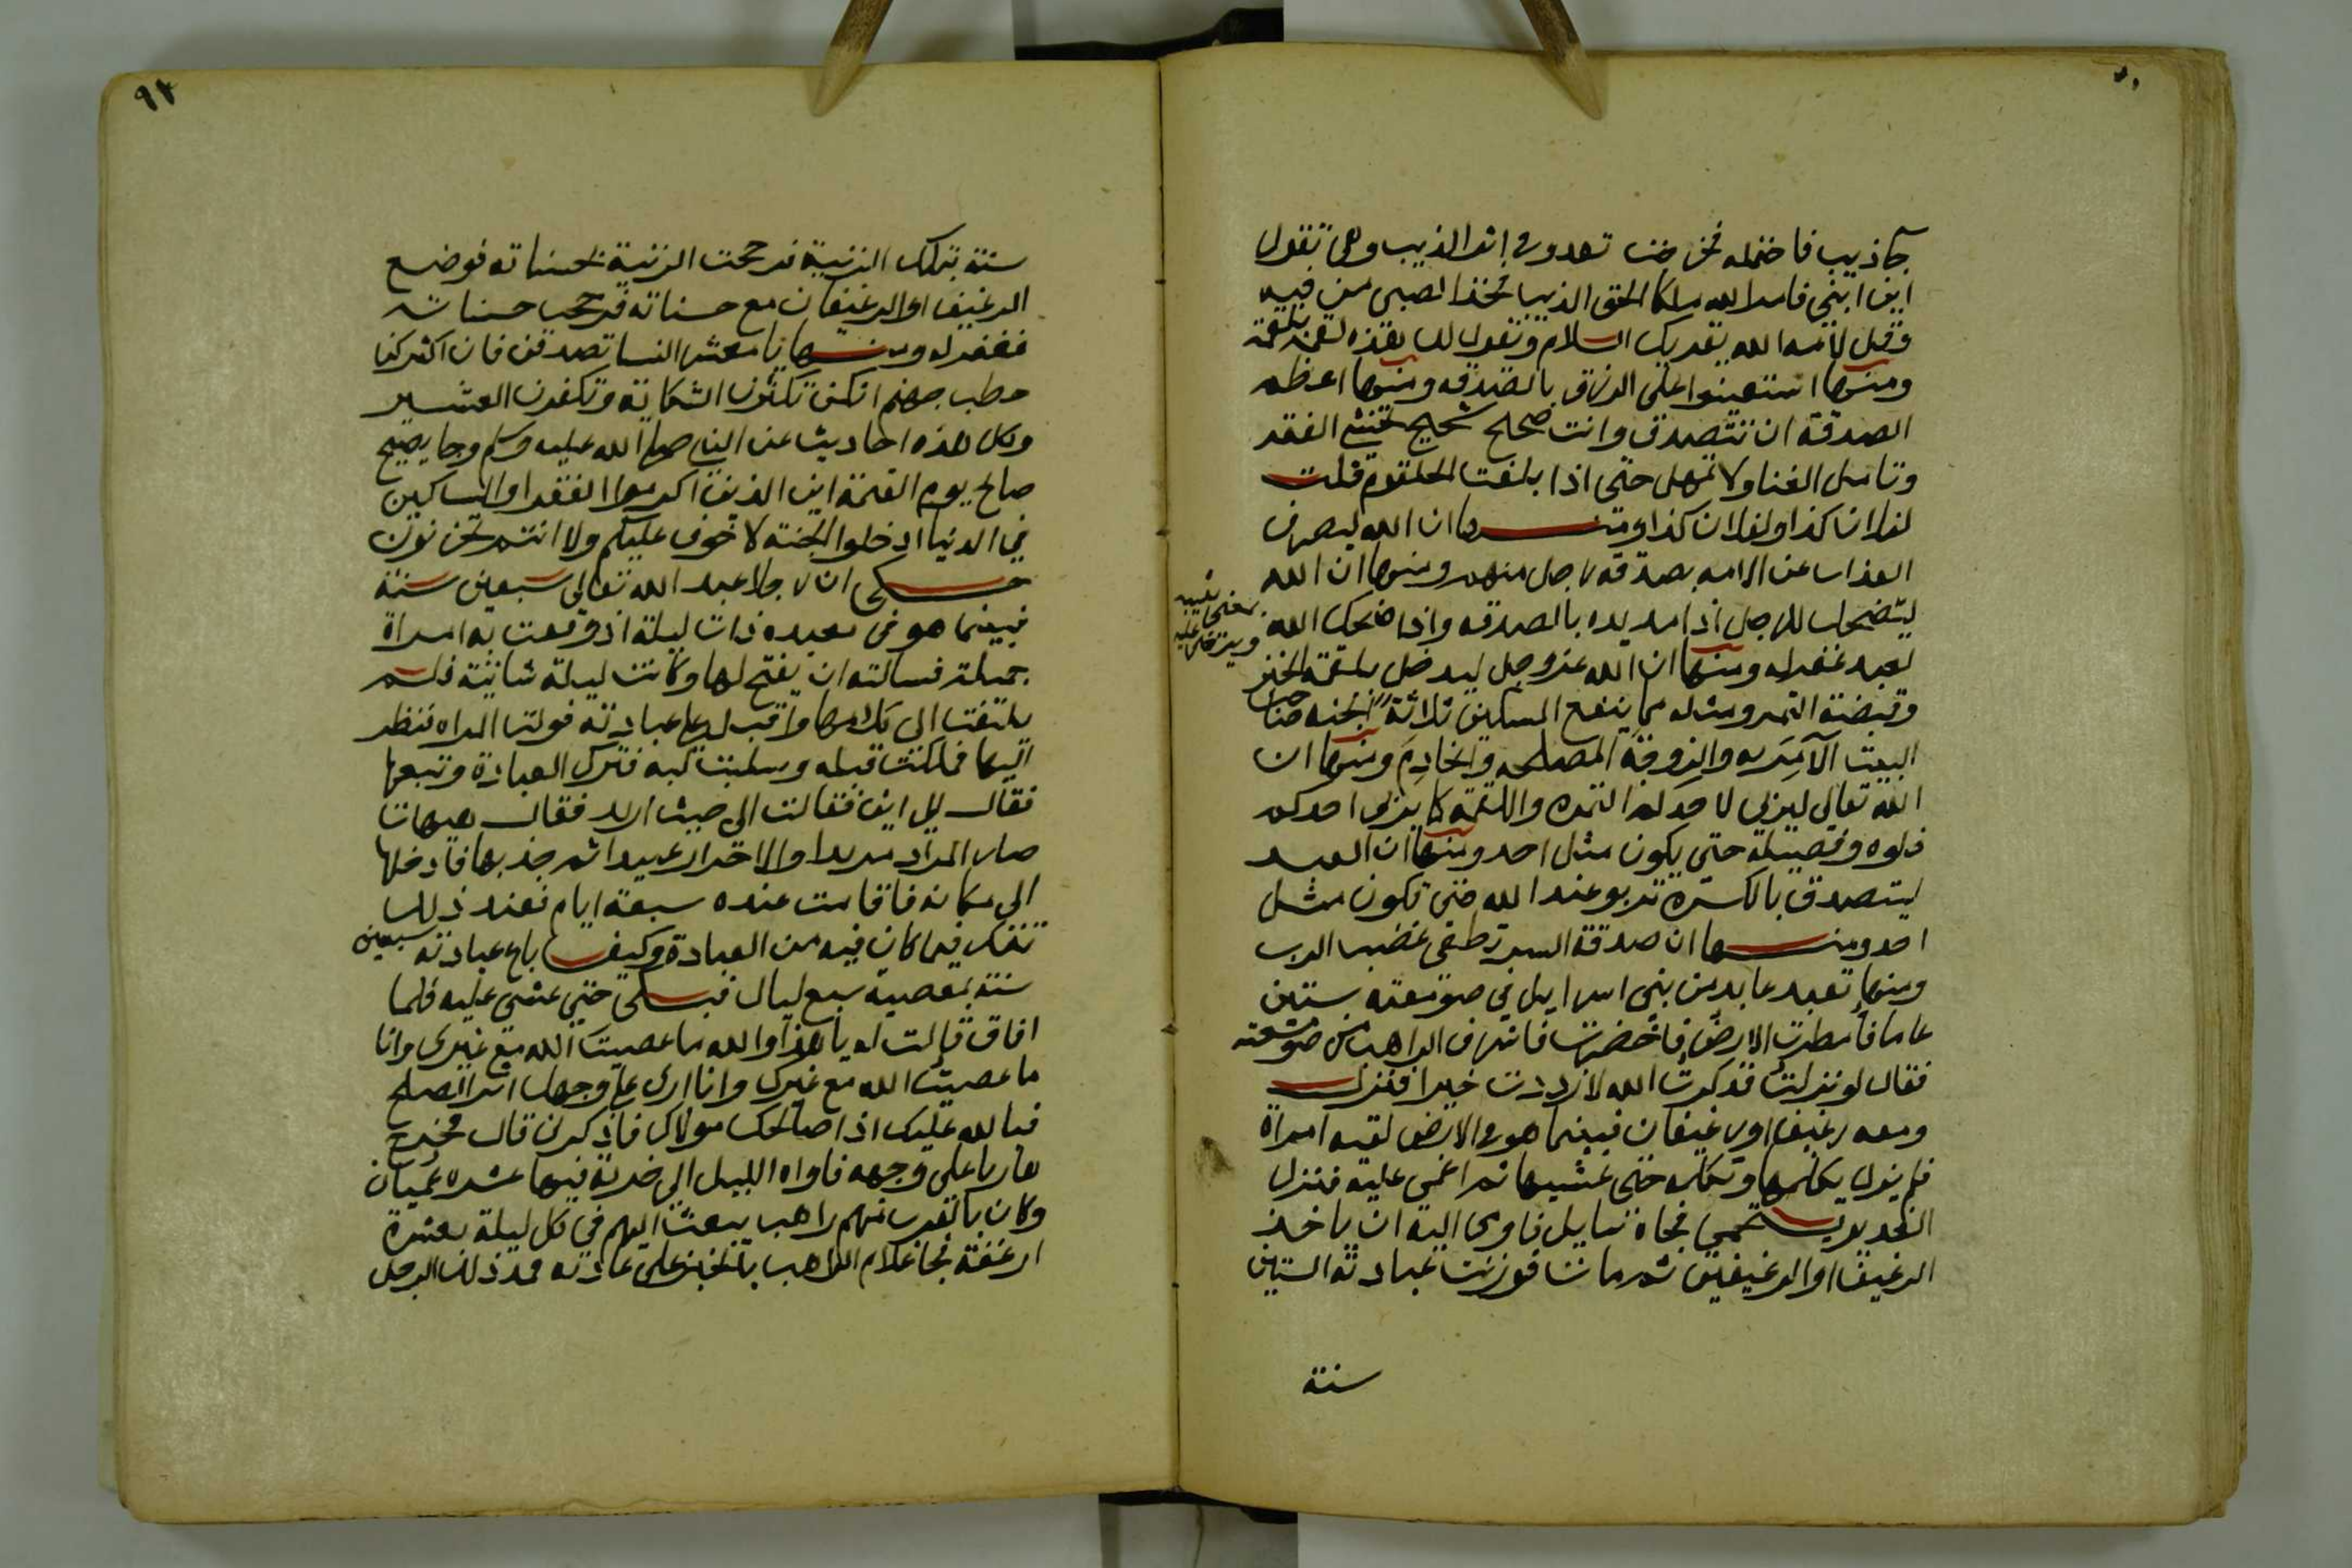 جا ذيب فاختمله فخرجت تعدو في اثر الذيب وهي تقول
ابني ابني فامر الله ملكا الحق الذيب فخذ الصبي من فيه
وقل لامه الله يقريك السلام وتقول لك هذه لقمة بلقمة
ومنها استعينوا على الرزق بالصدقه ومنها اعظم
الصدقة ان تتصدق وانت صحيح شحيح تخشى الفقر
وتامل الغنا ولا تمهل حتى اذا بلغت الحلقوم قلت
لفلان كذا ولفلان كذا ومنها ان الله ليصرف
العذاب عن الامه بصدقة رجل منهم ومنها ان الله
ليضحك للرجل اذا مد يده بالصدقه واذا ضحك الله
لعبد غفر له ومنها ان الله عز وجل ليدخل بلقمة الخبز
وقبضة التمر ومثله مما ينفع المسكين ثلاثة الجنه صاحب
البيت الآمر به والزوجة المصلحه والخادم ومنها ان
الله تعالى ليربي لاحدكم التمره واللقمة كما يربي احدكم
فلوه وفصيله حتى يكون مثل احد ومنها ان العبد
ليتصدق بالكسرة تربو عند الله حتى تكون مثل
احد ومنها ان صدقة السر تطفي غضب الرب
ومنها تعبد عابد من بني اسرايل في صومعته ستين
عاما فأمطرت الارض فاخضرت فاشرف الراهب من صومعته
فقال لو نزلت فذكرت الله لازددت خيرا فنزل
ومعه رغيف او رغيفان فبينما هو في الارض لقيه امراة
فلم يزل يكلمها وتكلمه حتى غشيها ثم اغمي عليه فنزل
الغدير يستحمي فجاه سايل فاومى اليه ان ياخذ
الرغيف او الرغيفين ثم مات فوزنت عبادته الستين
سنة
٩٢
سنة بتلك الزنية فرجحت الزنية بحسناته فوضع
الرغيف او الرغيفان مع حسناته فرجحت حسناته
فغفر له ومنها يا معشر النسا تصدقن فان اكثركن
حطب جهنم انكن تكثرن الشكاية وتكفرن العشير
وكل هذه احاديث عن النبي صلى الله عليه وسلم وجا يصيح
صايح يوم القيمة اين الذين اكرموا الفقرا والمساكين
في الدنيا ادخلوا الجنة لا خوف عليكم ولا انتم تحزنون
حكى ان رجلا عبد الله تعالى سبعين سنة
فبينما هو في معبده ذات ليلة اذ وقعت به امراة
جميلة فسالته ان يفتح لها وكانت ليلة شاتية فلم
يلتفت الى كلامها واقبل على عبادته فولت المراه فنظر
اليها فملكت قلبه وسلبت لبه فترك العبادة وتبعها
فقال الى اين فقالت الى حيث اريد فقال هيهات
صار المراد مريدا والاحرار عبيدا ثم جذبها فادخلها
الى مكانه فاقامت عنده سبعة ايام فعند ذلك
تفكر فيما كان فيه من العبادة وكيف باع عبادته سبعين
سنة بمعصية سبع ليال فبكى حتى غشي عليه فلما
افاق قالت له يا هذا والله ما عصيت الله مع غيري وانا
ما عصيت الله مع غيرك وانا ارى على وجهك اثر الصلح
فبالله عليك اذا صالحك مولاك فاذكرني قال فخرج
هاربا على وجهه فاواه الليل الى خربة فيها عشره عميان
وكان بالقرب منهم راهب يبعث اليهم في كل ليلة بعشرة
ارغفة فجا غلام الراهب بالخبز على عادته فمد ذلك الرجل